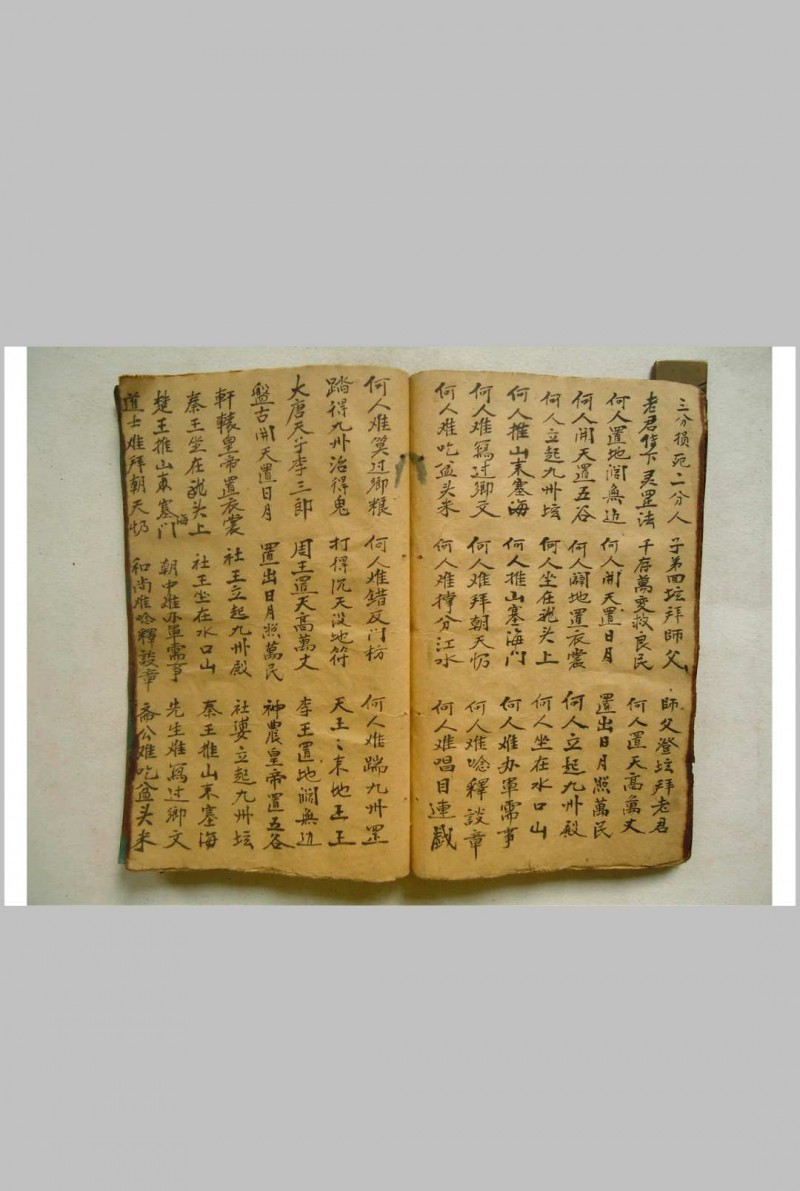 三分损苑二分人 子弟四坛拜師父 師父登坛拜老君
老君貨下灵罡法 千存萬变救良民 何人置天高萬丈
何人置地闊無边 何人開天置日月 置出日月照萬民
何人開天置五谷 何人闢地置衣裳 何人立起九州殿
何人立起九州坛 何人坐在龍头上 何人坐在水口山
何人推山来塞海 何人推山塞海門 何人难办軍需事
何人难寫过卿文 何人难拜朝天忉 何人难唸釋談章
何人难吃盆头米 何人难撑分江水 何人难唱目連戯
何人难筭过卿粮 何人难錯反门枋 何人难踹九州罡
踏得九州治得鬼 打得沉天没地符 天王〻来地王王
大唐天子李三郎 周王置天高萬丈 李王置地闊無边
盤古開天置日月 置出日月照萬民 神農皇帝置五谷
軒轅皇帝置衣裳 社王立起九州殿 社婆立起九州坛
秦王坐在龍头上 社王坐在水口山 秦王推山来塞海
楚王推山来塞海門 朝中难办軍需事 先生难寫过卿文
道士难拜朝天忉 和尚难唸釋談章 斋公难吃盆头米